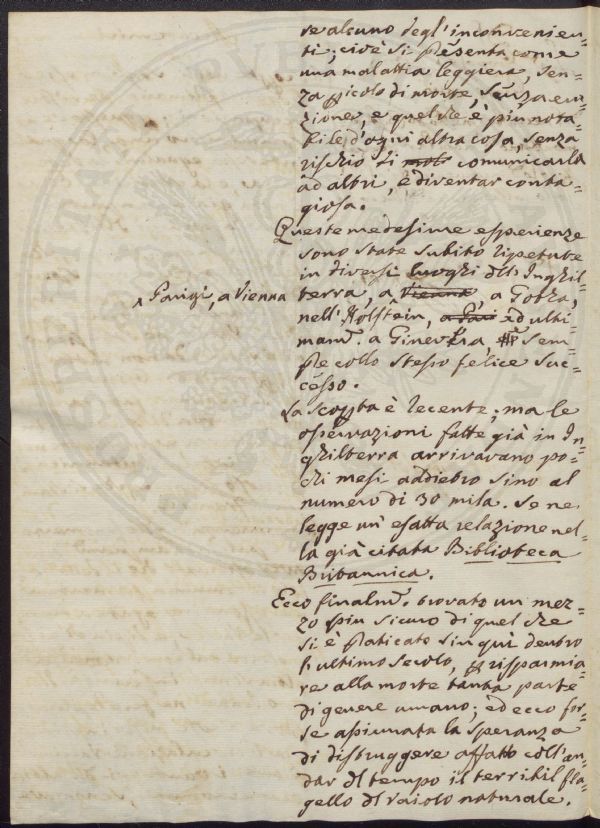 se alcuno degl'inconvenien=
ti; cioè si presenta come
una malattia leggiera, sen=
za picolo di morte, senza eru=
zione, e quel che è piu nota=
bile d'ogni altra cosa, senza
rischio di comunicarla
ad altri, e diventar conta=
giosa.
Queste medesime esperienze
sono state subito ripetute
in diversi luoghi dell'Inghil=
^ Parigi, a Vienna
terra, a Vienna, a Gotha,
nell'Holstein, a Pari ed ulti=
mam. a Ginevra, sem=
pre collo stesso felice suc=
cesso.
La scopta è recente; ma le
osservazioni fatte già in In=
ghilterra arrivavano po=
chi mesi addietro sino al
numero di 30 mila. Se ne
legge un'esatta relazione nel=
la già citata Biblioteca
Britannica.
Ecco finalm. trovato un mez=
zo piu sicuro di quel che
si è praticato sin qui dentro
l'ultimo secolo, p risparmia=
re alla morte tanta parte
di genere umano; ed ecco for=
se assicurata la speranza
di distruggere affatto coll'an=
dar del tempo il terribil fla=
gello del vaiolo naturale.